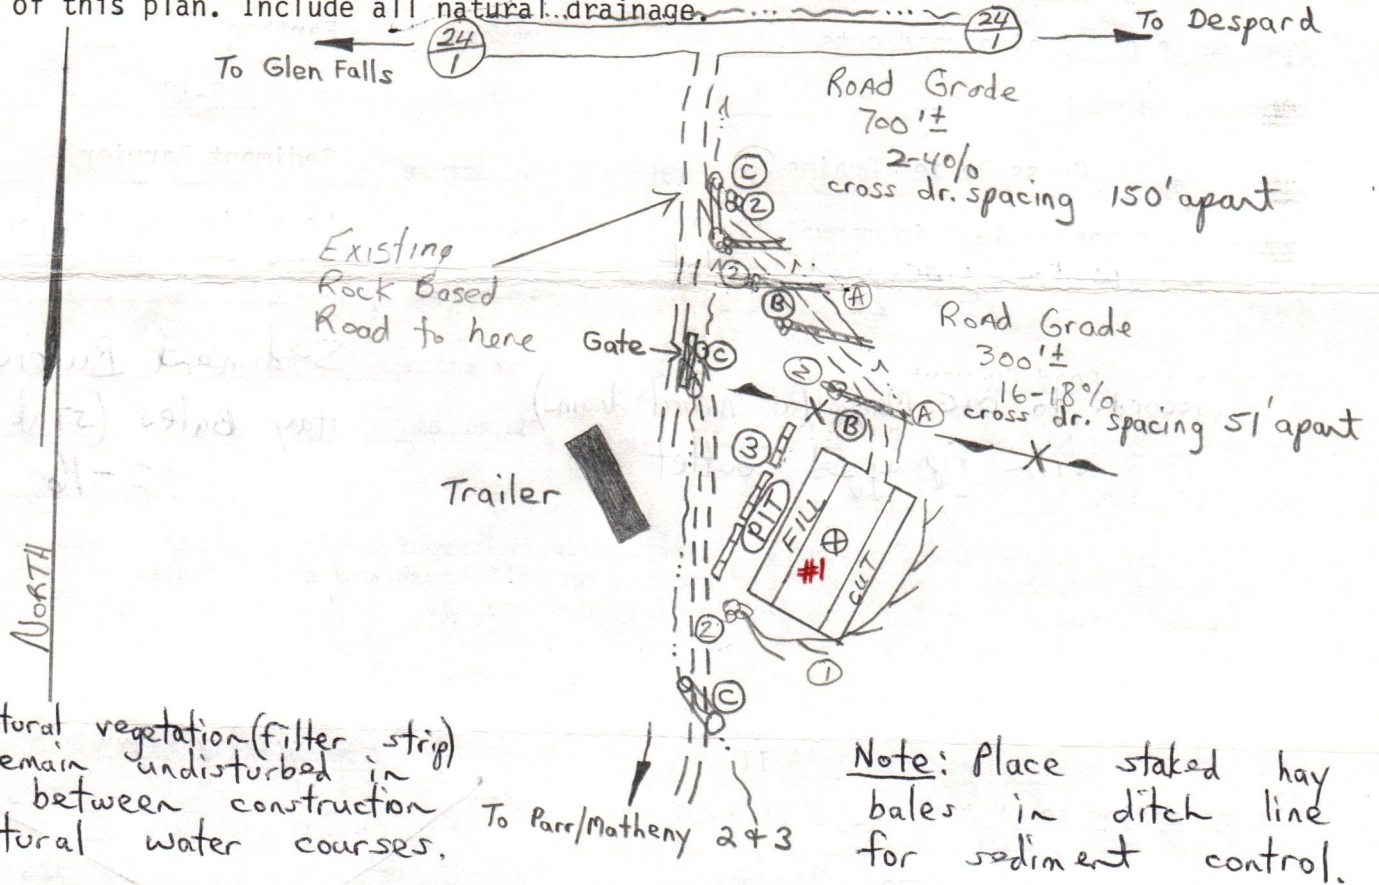 of this plan. Include all natural drainage.
To Glen Falls
24
1
24
1
To Despard
Road Grade
700'±
2-4%
cross dr. spacing 150' apart
C
2
Existing
Rock Based
Road to here
2
B
A
Road Grade
300'±
16-18%
cross dr. spacing 51' apart
Gate
C
2
A
B
3
Trailer
PIT
FILL
#1
CUT
2
1
C
NORTH
tural vegetation (filter strip)
emain undisturbed in
between construction
tural water courses.
To Parr/Matheny 2 & 3
Note: Place staked hay
bales in ditch line
for sediment control.